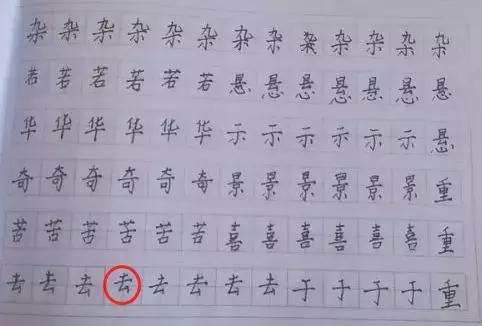 杂杂杂杂杂杂杂杂杂杂杂杂杂
若若若若若若悬悬悬悬悬悬悬
华华华华华华示示示示示示悬
奇奇奇奇奇奇景景景景景景重
苦苦苦苦苦苦喜喜喜喜喜喜重
去去去去去去去去于于于于重